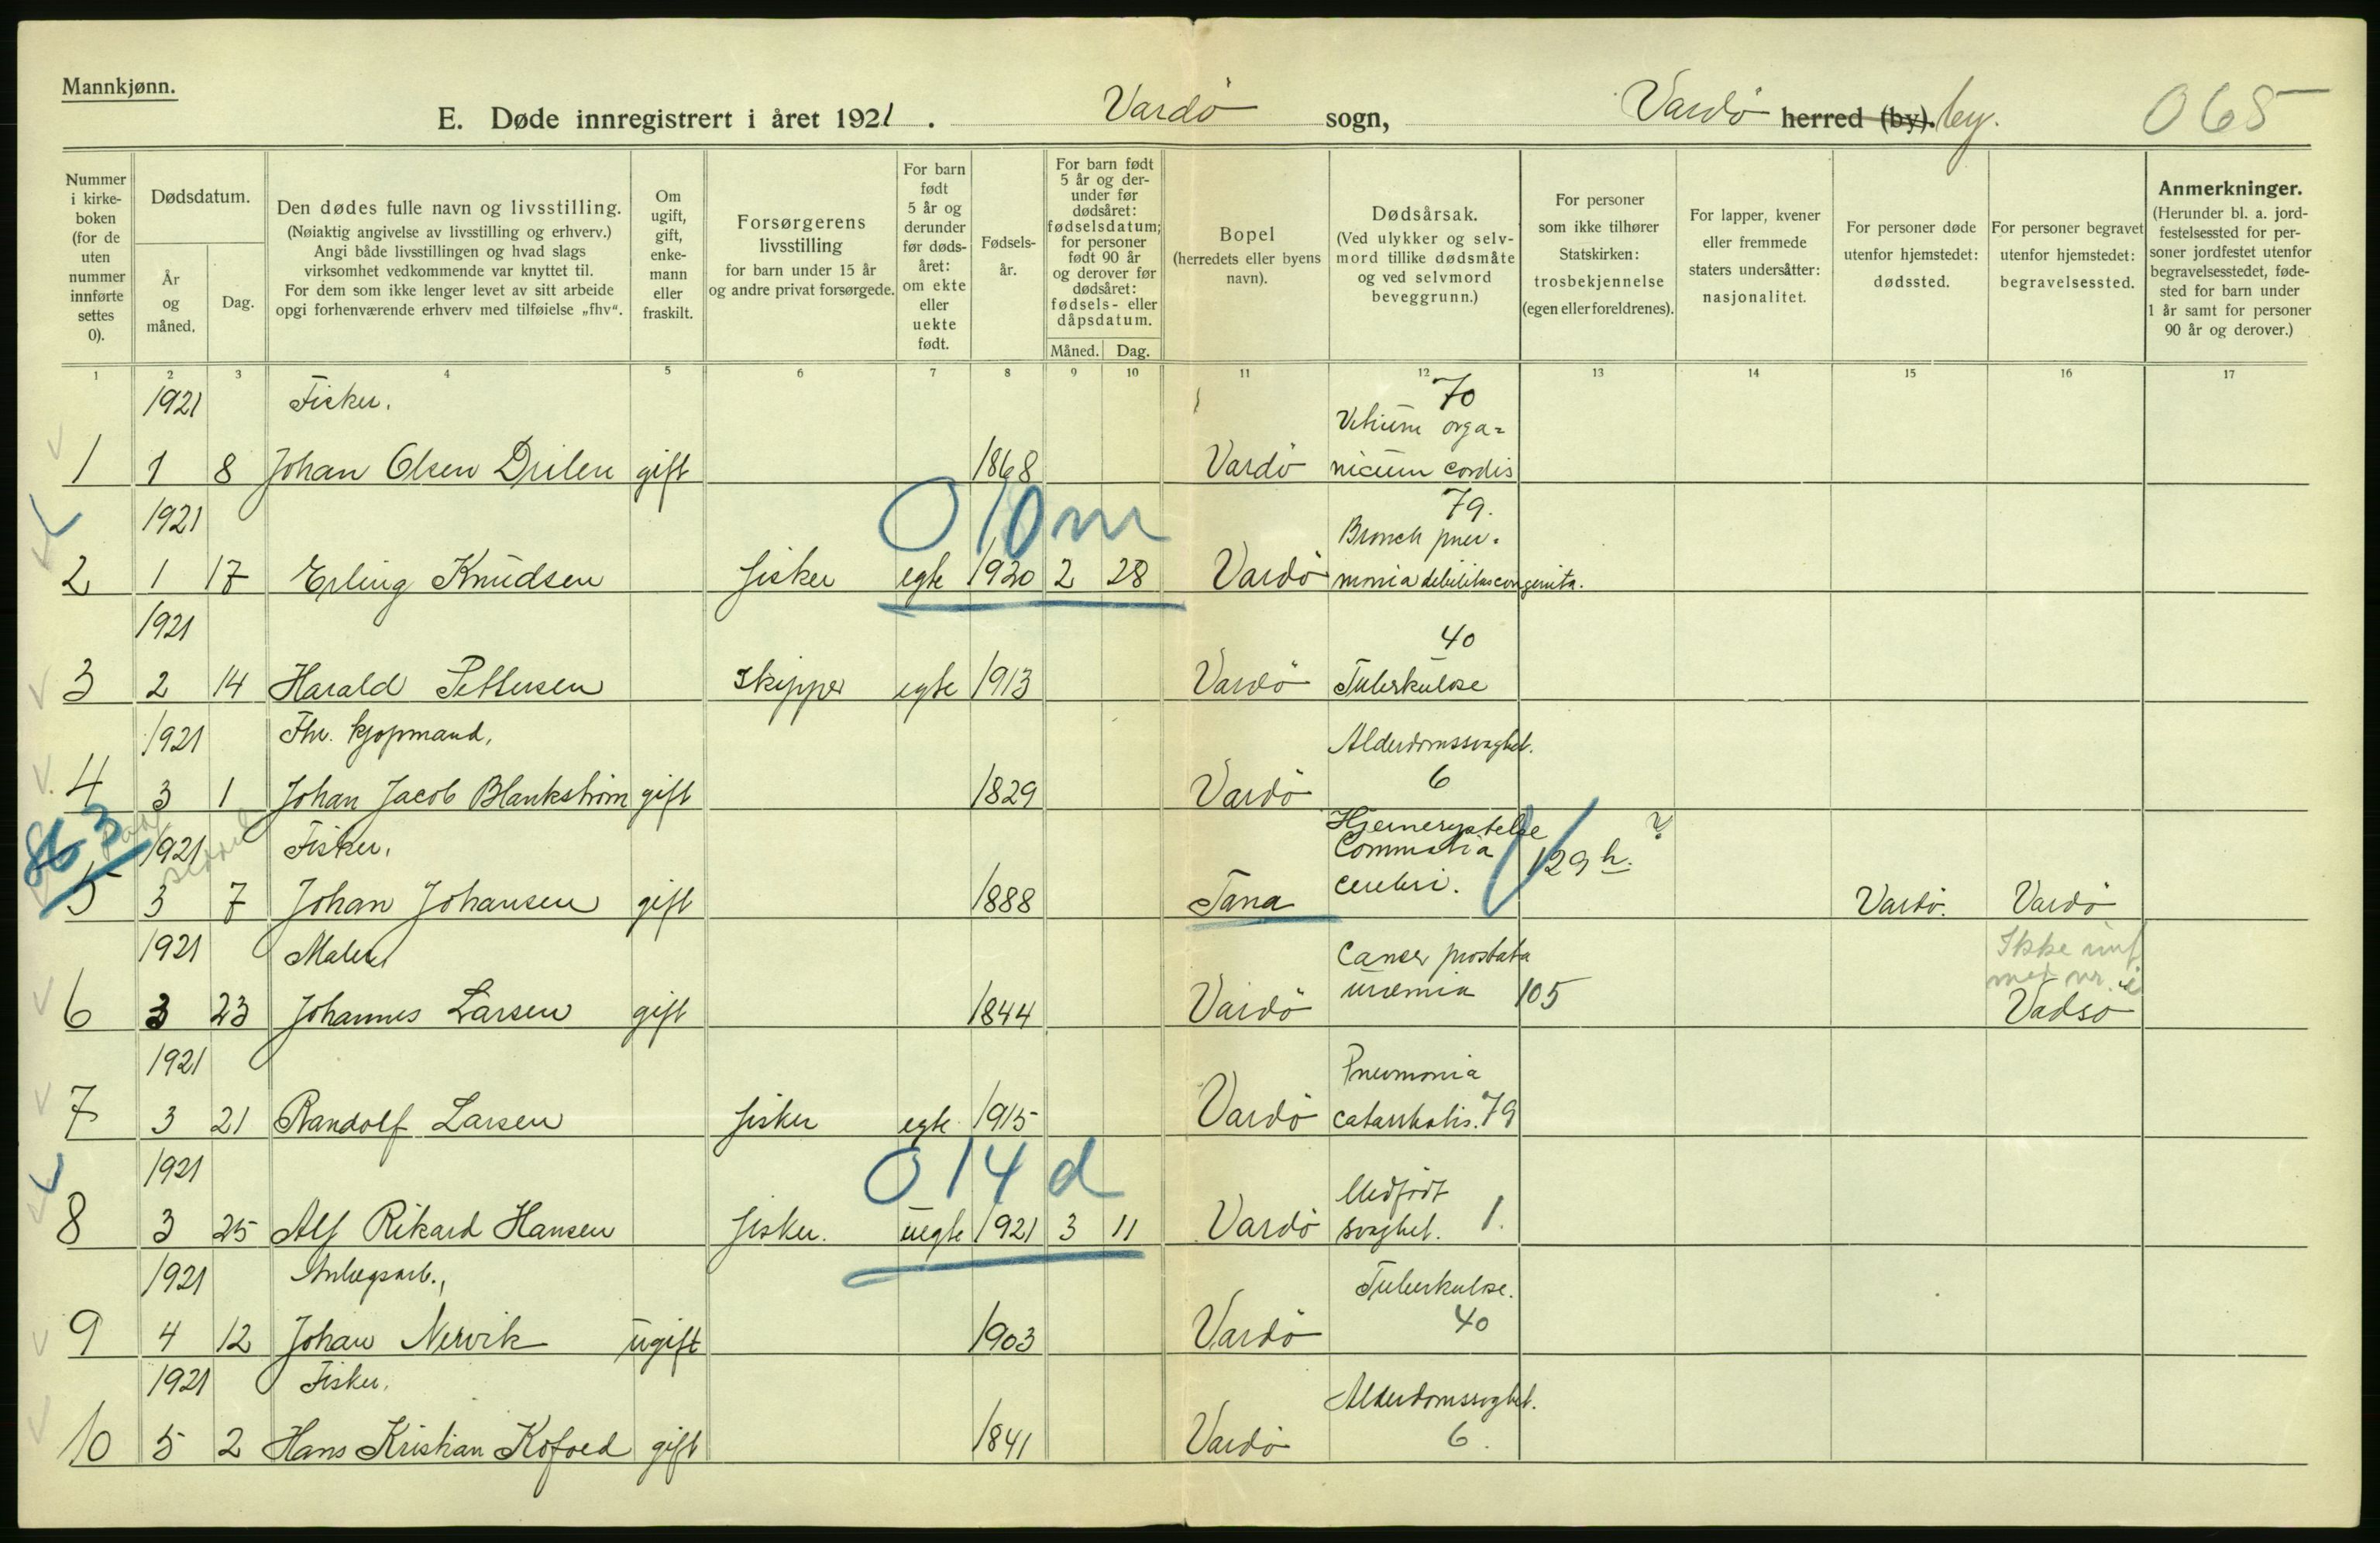 Mannkjønn.
E. Døde innregistrert i året 1921. Vardö sogn, Vardö herred (by). by. 065
Nummer i kirke-boken (for de uten nummer innførte settes 0).
Dødsdatum.
År og måned.
Dag.
Den dødes fulle navn og livsstilling.
(Nøiaktig angivelse av livsstilling og erhverv.)
Angi både livsstillingen og hvad slags
virksomhet vedkommende var knyttet til.
For dem som ikke lenger levet av sitt arbeide
opgi forhenværende erhverv med tilføielse „fhv“.
Om ugift, gift, enke-mann eller fraskilt.
Forsørgerens livsstilling
for barn under 15 år
og andre privat forsørgede.
For barn født 5 år og derunder før døds-året: om ekte eller uekte født.
Fødsels-år.
For barn født 5 år og der-under før dødsåret: fødselsdatum; for personer født 90 år og derover før dødsåret: fødsels- eller dåpsdatum.
Måned. Dag.
Bopel
(herredets eller byens navn).
Dødsårsak.
(Ved ulykker og selv-mord tillike dødsmåte og ved selvmord beveggrunn.)
For personer som ikke tilhører Statskirken: trosbekjennelse (egen eller foreldrenes).
For lapper, kvener eller fremmede staters undersåtter: nasjonalitet.
For personer døde utenfor hjemstedet: dødssted.
For personer begravet utenfor hjemstedet: begravelsessted.
Anmerkninger.
(Herunder bl. a. jord-festelsessted for per-soner jordfestet utenfor begravelsesstedet, føde-sted for barn under 1 år samt for personer 90 år og derover.)
1 2 3 4 5 6 7 8 9 10 11 12 13 14 15 16 17
1921 Fisker. 70
Vitium orga=
1 1 8 Johan Olsen Drilen gift 1868 Vardö nicum cordis
1921 010 m 79.
Bronch pneu=
2 1 17 Erling Knudsen fisker egte 1920 2 28 Vardö monia debilitas congenita.
1921 40
3 2 14 Harald Pettersen Skipper egte 1913 Vardö Tuberkulose
1921 Fhv. kjøpmand, Alderdomssvaghet.
4 3 1 Johan Jacob Blankström gift 1829 Vardö 6
863 1921 Fisker. Hjernerystelse
Commotio 129 h. ?
5 3 7 Johan Johansen gift 1888 Tana cerebri. Vardö. Vardö
1921 Maler Cancer prostata Ikke
6 3 23 Johannes Larsen gift 1844 Vardö uræmia 105 Vadsö
1921 Pneumonia
7 3 21 Randolf Larsen fisker egte 1915 Vardö catarrhalis. 79
1921 0 14 d Medfödt
8 3 25 Alf Rikard Hansen fisker. uegte 1921 3 11 Vardö svaghet. 1.
1921 Anlegsarb., Tuberkulose.
9 4 12 Johan Nervik ugift 1903 Vardö 40
1921 Fisker. Alderdomssvaghet.
10 5 2 Hans Kristian Kofoed gift 1841 Vardö 6.